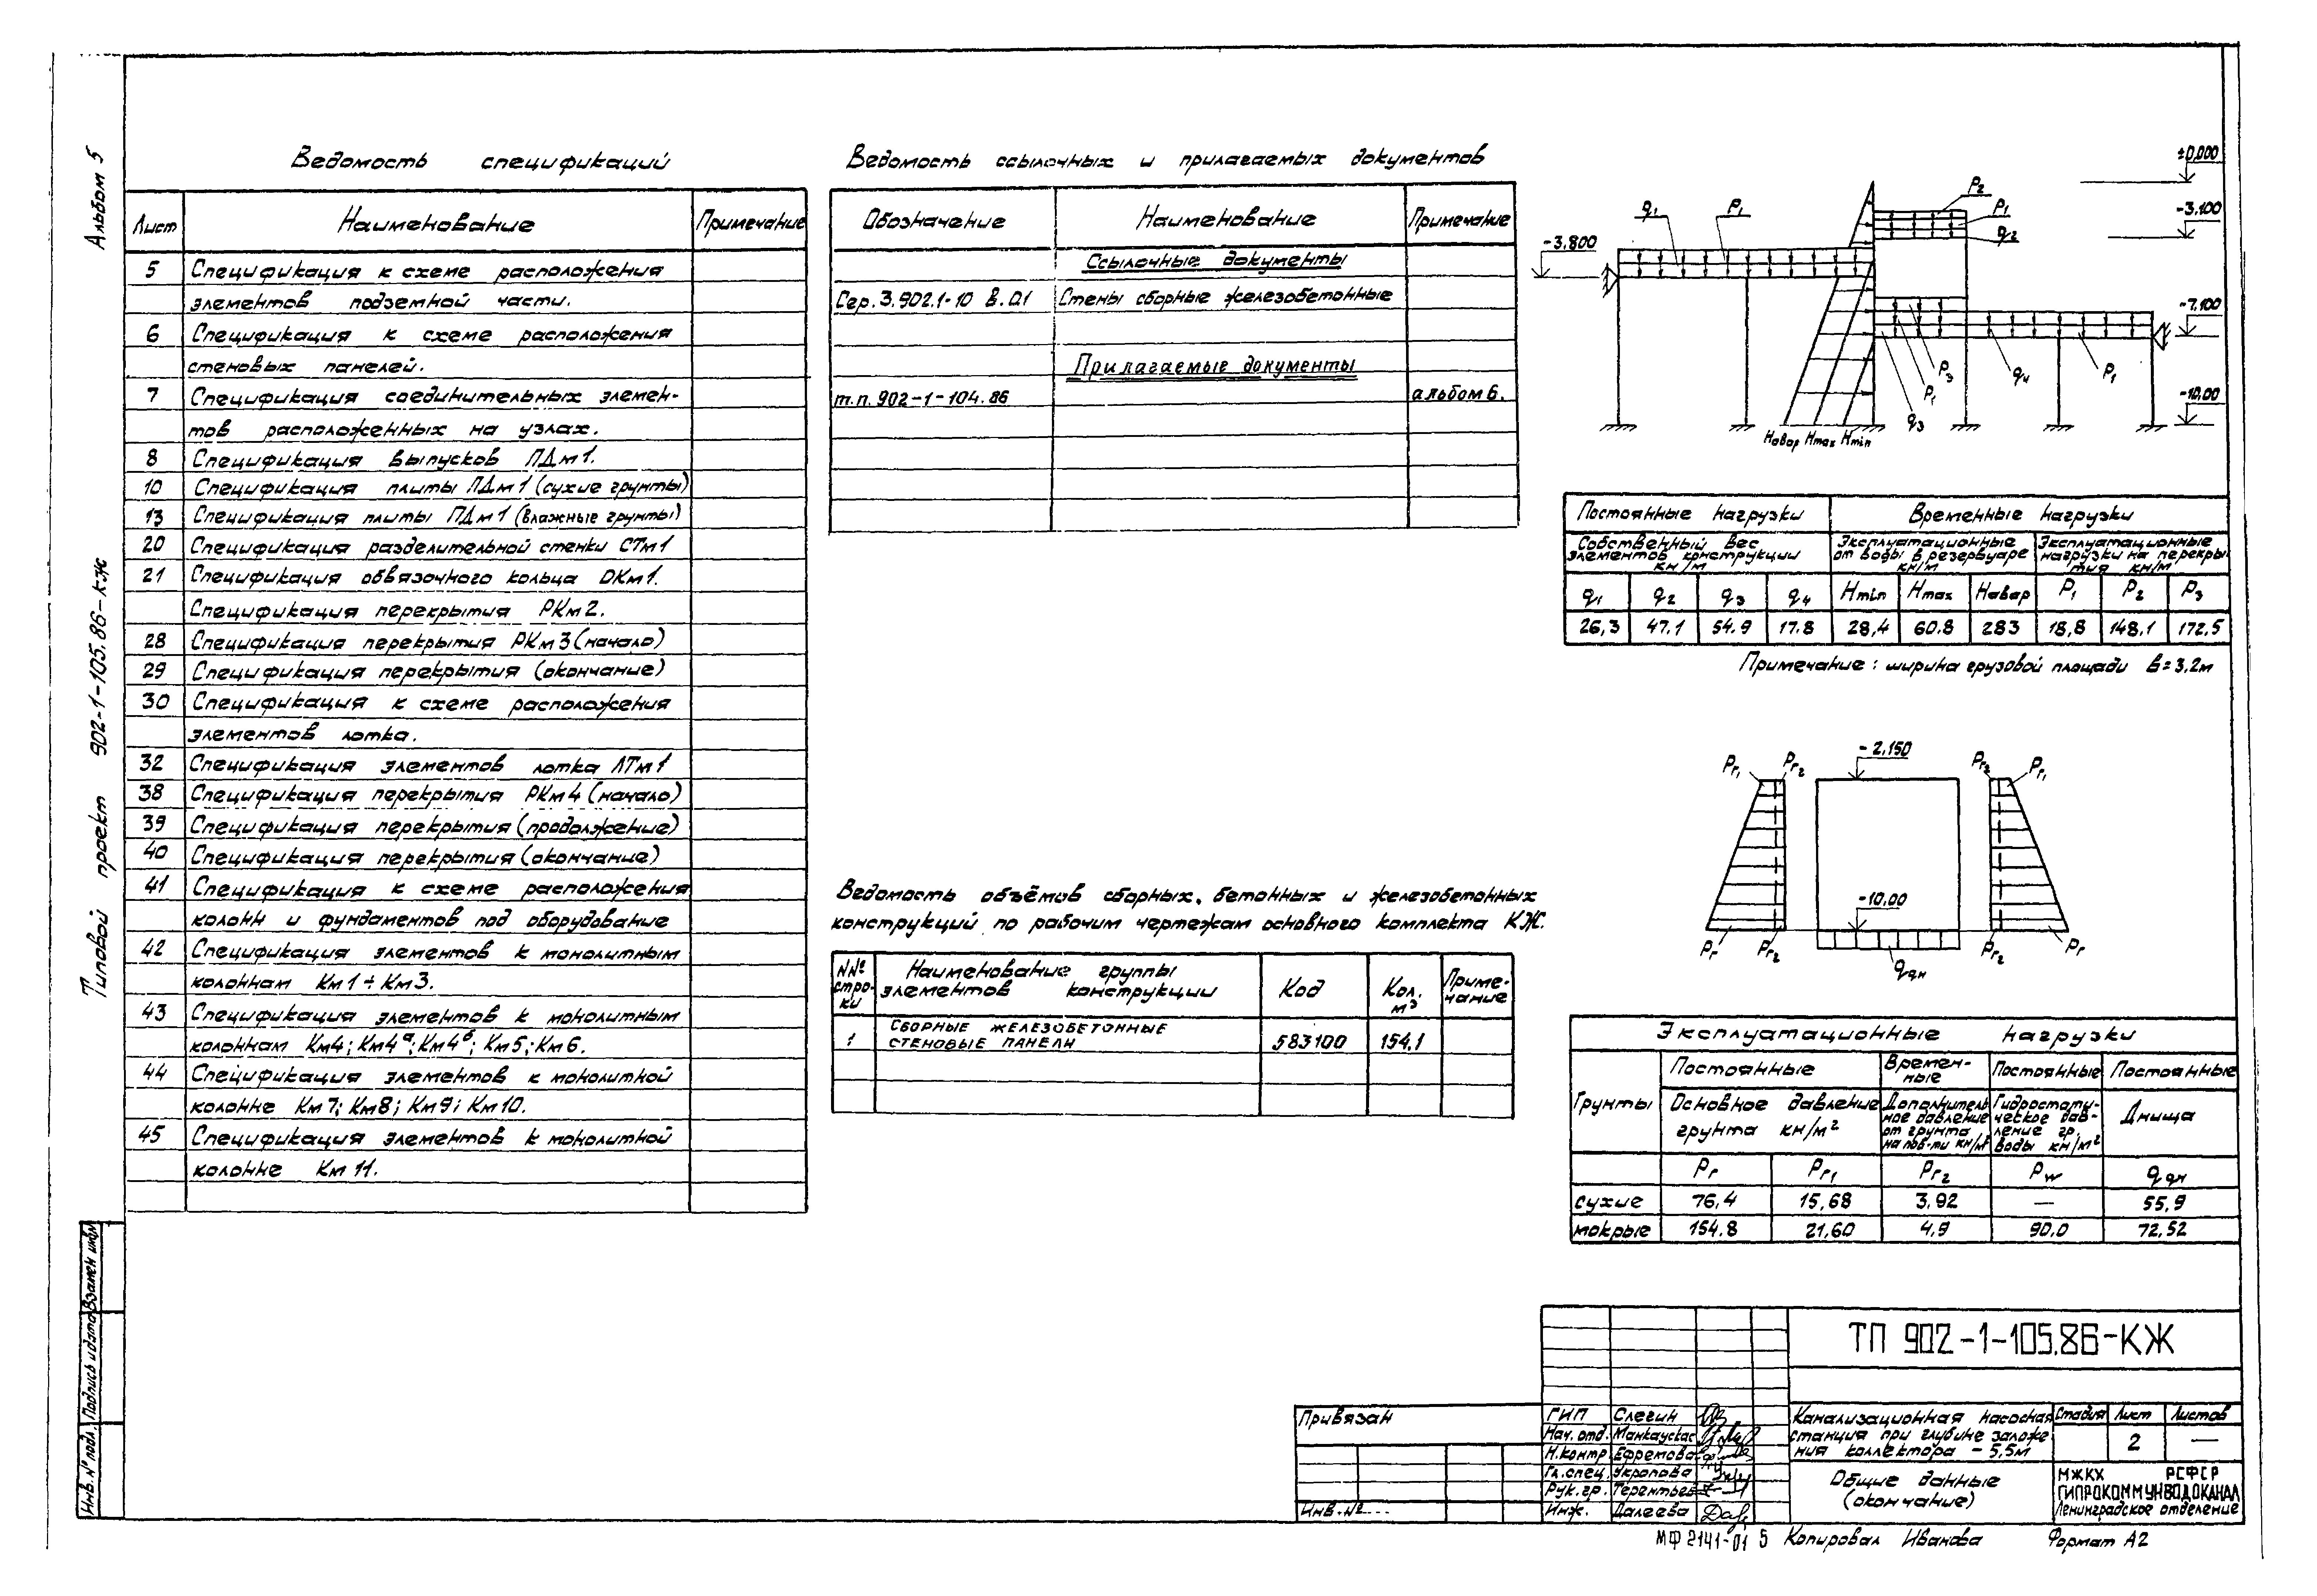 Альбом 5
Типовой проект 902-1-105.86-КЖ
Инв. № подл.
Подпись и дата
Взамен инв№
Ведомость спецификаций
Лист Наименование Примечание
5 Спецификация к схеме расположения
элементов подземной части.
6 Спецификация к схеме расположения
стеновых панелей.
7 Спецификация соединительных элемен-
тов расположенных на узлах.
8 Спецификация выпусков ПДм1.
10 Спецификация плиты ПДм1 (сухие грунты)
13 Спецификация плиты ПДм1 (влажные грунты)
20 Спецификация разделительной стенки СТм1
21 Спецификация обвязочного кольца ОКм1.
Спецификация перекрытия РКм2.
28 Спецификация перекрытия РКм3 (начало)
29 Спецификация перекрытия (окончание)
30 Спецификация к схеме расположения
элементов лотка.
32 Спецификация элементов лотка ЛТм1
38 Спецификация перекрытия РКм4 (начало)
39 Спецификация перекрытия (продолжение)
40 Спецификация перекрытия (окончание)
41 Спецификация к схеме расположения
колонн и фундаментов под оборудование
42 Спецификация элементов к монолитным
колоннам Км1÷Км3.
43 Спецификация элементов к монолитным
колоннам Км4; Км4а; Км4б; Км5; Км6.
44 Спецификация элементов к монолитной
колонне Км7; Км8; Км9; Км10.
45 Спецификация элементов к монолитной
колонне Км11.
Ведомость ссылочных и прилагаемых документов
Обозначение Наименование Примечание
Ссылочные документы
Сер. 3.902.1-10 В.0.1 Стены сборные железобетонные
Прилагаемые документы
т.п. 902-1-104.86 альбом 6.
Ведомость объёмов сборных, бетонных и железобетонных
конструкций по рабочим чертежам основного комплекта КЖ.
№№ стро- ки Наименование группы элементов конструкции Код Кол. м³ Приме- чание
1 СБОРНЫЕ ЖЕЛЕЗОБЕТОННЫЕ СТЕНОВЫЕ ПАНЕЛИ 583100 154,1
±0,000
-3.100
-3.800
-7.100
-10.00
q1 P1 P2 P1 q2
P3 P1 q3 q4 P1
Навар Hmax Hmin
Постоянные нагрузки Временные нагрузки
Собственный вес элементов конструкции кн/м
Эксплуатационные от воды в резервуаре кн/м
Эксплуатационные нагрузки на перекры тия кн/м
q1 q2 q3 q4 Hmin Hmax Навар P1 P2 P3
26,3 47.1 54.9 17.8 28,4 60.8 283 18,8 148,1 172,5
Примечание: ширина грузовой площади b=3,2м
-2,150
Pг1 Pг2 Pг2 Pг1
-10,00
Pг Pг2 Pг2 Pг
qдн
Эксплуатационные нагрузки
Грунты Постоянные Времен- ные Постоянные Постоянные
Основное давление грунта кн/м²
Дополнитель ное давление от грунта на пов-ти кн/м²
Гидростати- ческое дав- ление гр. воды кн/м²
Днища
Pг Pг1 Pг2 Pw qдн
сухие 76,4 15,68 3,92 — 55,9
мокрые 154.8 21,60 4,9 90.0 72,52
ТП 902-1-105.86-КЖ
Привязан
Инв.№
ГИП Слегин
Нач. отд. Манкаускас
Н.контр Ефремова
Гл.спец. Укропова
Рук. гр. Терентьев
Инж. Далеева
Канализационная насосная
станция при глубине заложе
ния коллектора - 5,5м
Стадия Лист Листов
2 —
Общие данные
(окончание)
МЖКХ РСФСР
ГИПРОКОММУНВОДОКАНАЛ
Ленинградское отделение
МФ 2141-01 5 Копировал Иванова Формат А2